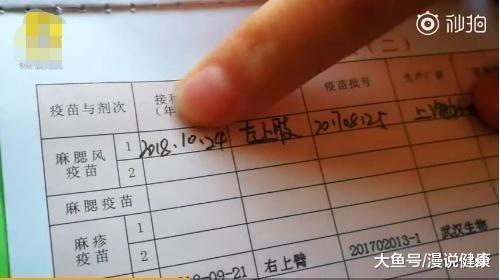 秒拍
(二)
疫苗与剂次 接种 疫苗批号 生产厂
(年
麻腮风疫苗 1 2018.10.24 右上肢 201708125 上
2
麻腮疫苗
麻疹疫苗 1
2 -09-21 右上臂 201702013-1 武汉生物
大鱼号/漫说健康